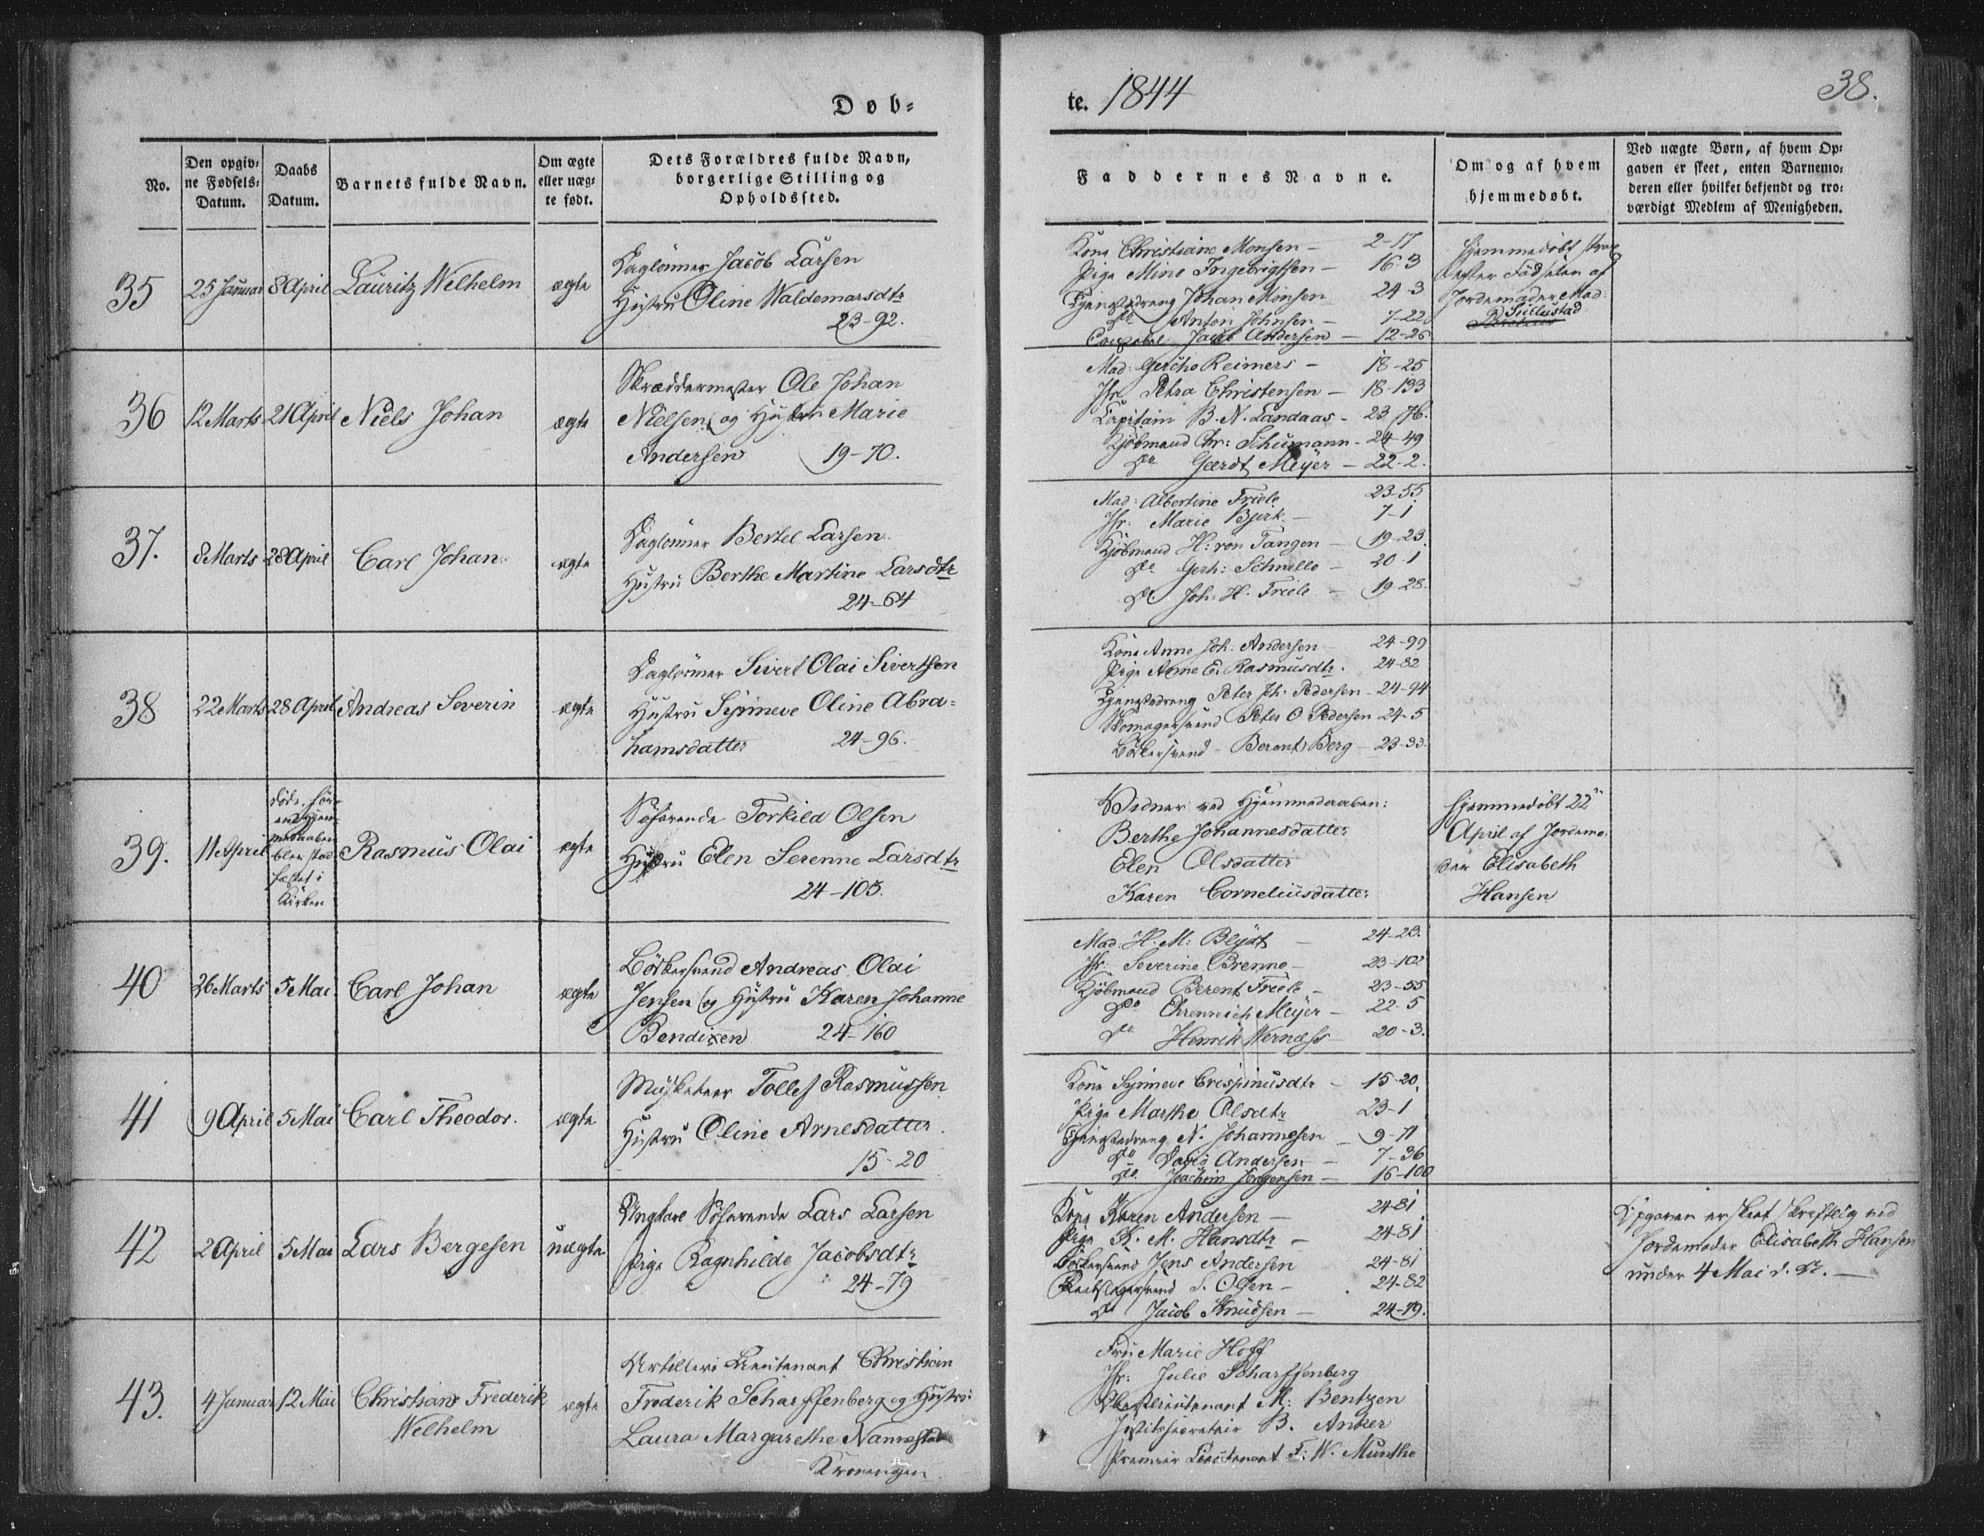 Døb=
te. 1844
38.
No.
Den opgiv=
ne Fødsels=
Datum.
Daabs
Datum.
Barnets fulde Navn.
Om ægte
eller uæg=
te født.
Dets Forældres fulde Navn,
borgerlige Stilling og
Opholdssted.
Faddernes Navne.
Om og af hvem
hjemmedøbt.
Ved uægte Børn, af hvem Op=
gaven er skeet, enten Barnemo=
deren eller hvilket bekjendt og tro=
værdigt Medlem af Menigheden.
35
25 Januar
8 April
Lauritz Wilhelm
ægte
Daglønner Jacob Larsen
Hustru Oline Waldemarsdtr
23-92.
Kone Christiane Monsen - 2-17
Pige Mine Ingebrigtsen - 16-3
Tjenestedreng Johan Monsen 24-3
Do Anton Johnsen - 7-22
Jacob Andersen - 12-26
Hjemmedøbt strax
efter Fødselen af
Jordemoder Mad:
36
12 Marts
21 April
Niels Johan
ægte
Skræddermester Ole Johan
Nielsen og Hustru Marie
Andersen 19-70.
Mad: Gercho Reimers - 18-25
Jfr. Petra Christensen - 18-133
Capitain B. N. Landaas - 23-76.
Kjøbmand Chr: Schumann - 24-49
Do Gerdt Meyer - 22-2.
37.
8 Marts
28 April
Carl Johan.
ægte
Daglønner Bertel Larsen.
Hustru Berthe Martine Larsdtr
24-64
Mad: Albertine Friele 23-55
Jfr: Marie Bjerk - 7-1
Kjøbmand H: von Tangen - 19-23.
Do Gerh: Schnelle - 20-1
Do Joh: H. Friele - 19-28.
38
22 Marts
28 April
Andreas Severin
ægte
Daglønner Sivert Olai Sivertsen
Hustru Synneve Oline Abra=
hamsdatter 24-96.
Kone Anne Joh: Andersen 24-99
Pige Anne E. Rasmusdtr. 24-82
Tjenestedreng Peter Joh: Pedersen - 24-94
Skomagersvend Peter O Pedersen 24-5
Bødkersvend - Berent Berg - 23-33.
39.
11 April
døde. før=
end Hjem=
medaaben
blev stad=
fæstet i
Kirken
Rasmus Olai
ægte
Søfarende Torkild Olsen
Hustru Elen Serenne Larsdtr
24-105.
Vidner ved Hjemmedaaben:
Berthe Johannesdatter
Elen Olsdatter
Karen Corneliusdatter
Hjemmedøbt 22n
April af Jordemo=
der Elisabeth
Hansen
40
26 Marts
5 Mai
Carl Johan
ægte
Bödkersvend Andreas Olai
Jensen og Hustru Karen Johanne
Bendixen 24-160
Mad: H. M: Blydt - 24-23.
Jfr. Severine Brenno - 23-102
Kjöbmand Berent Friele - 23-55
Do Ehrenreich Meyer - 22-5
Do Henrik Wernæss 20-3.
41
9 April
5 Mai
Carl Theodor.
ægte
Musketeer Tollef Rasmussen
Hustru Oline Arnesdatter.
15-20
Kone Synneve Crespinusdtr - 15-20.
Pige Marthe Olsdtr 23-1
Tjenestedreng N. Johannesen - 9-71
Do David Andersen - 7-36
Do. Joachim Jørgensen - 16-100
42
2 April
5 Mai
Lars Bergesen
uægte
Ungkarl Søfarende Lars Larsen
Pige Ragnhilde Jacobsdtr
24-79
Kone Karen Andersen - 24-81
Pige K. M. Hansdtr - 24-81
Bödkersvend Jens Andersen 24-81
S. Olsen - 24-82
Do Jacob Knudsen - 24-79.
Opgaven er skeet skriftlig ved
Jordemoder Elisabeth Hansen
under 4 Mai d. A. -
43.
4 Januar
12 Mai
Christian Frederik
Wilhelm
ægte
Artilleri Lieutenant Christian
Frederik Scharffenberg og Hustru
Laura Margarethe
Fru Marie Hoff
Jfr: Julie Scharffenberg
Oberstlieutenant M: Bentzen
Justitssecretair B. Anker
Premier Lieutenant F: W. Munthe